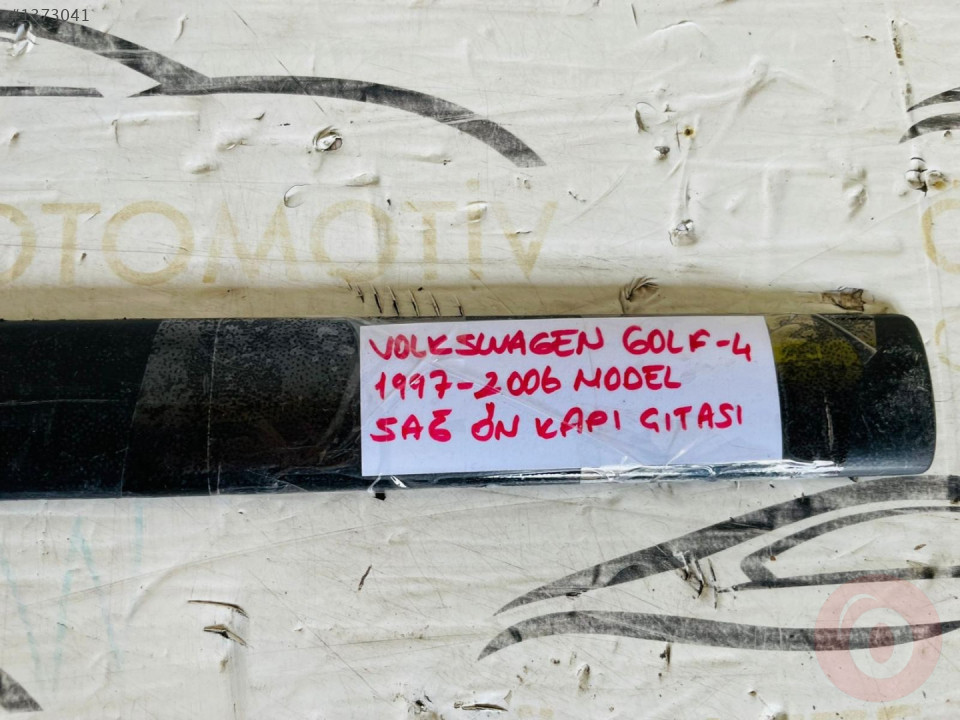 #1373041
OTOMOTİV
VOLKSWAGEN GOLF-4
1997-2006 MODEL
SAĞ ÖN KAPI GITASI